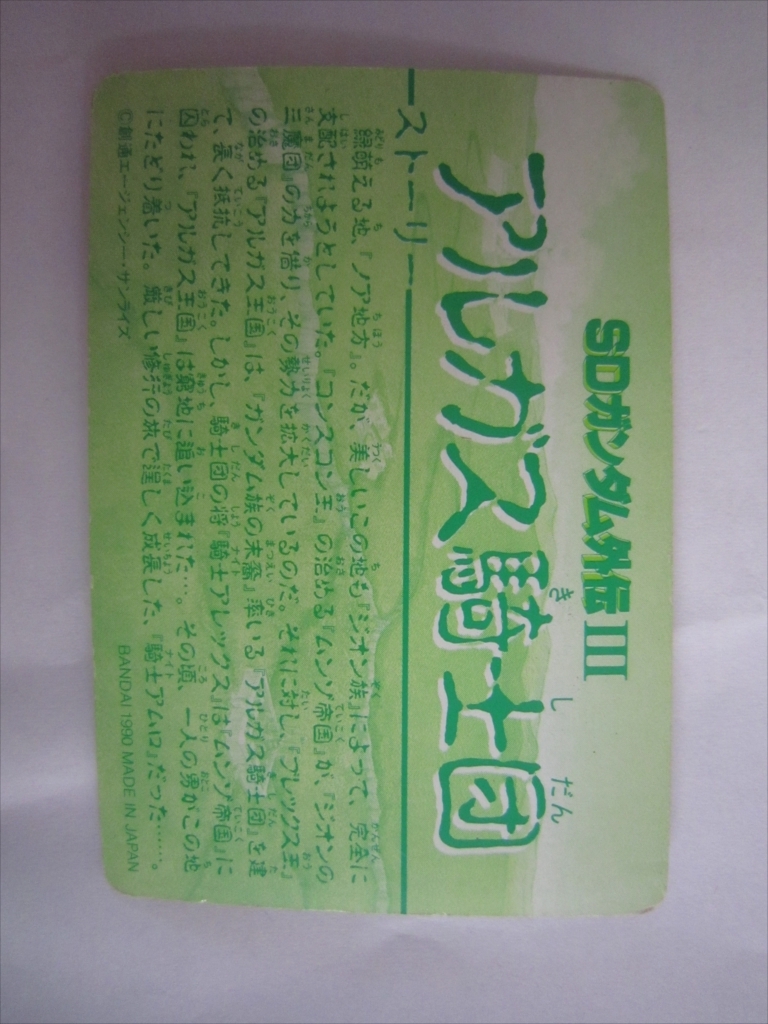 SDガンダム外伝III
アルガス騎士団
きしだん
ストーリー
緑萌える地、『ノア地方』。だが、美しいこの地も『ジオン族』によって、完全に
支配されようとしていた。『コンスコン王』の治める『ムンゾ帝国』が、『ジオンの
三魔団』の力を借り、その勢力を拡大しているのだ。それに対し、『ブレックス王』
の治める『アルガス王国』は、『ガンダム族の末裔』率いる『アルガス騎士団』を建
て、長く抵抗してきた。しかし、騎士団の将『騎士アレックス』は『ムンゾ帝国』に
囚われ、『アルガス王国』は窮地に追い込まれた…。その頃、一人の男がこの地
にたどり着いた。厳しい修行の旅で逞しく成長した、『騎士アムロ』だった……。
©創通エージェンシー・サンライズ
BANDAI 1990 MADE IN JAPAN